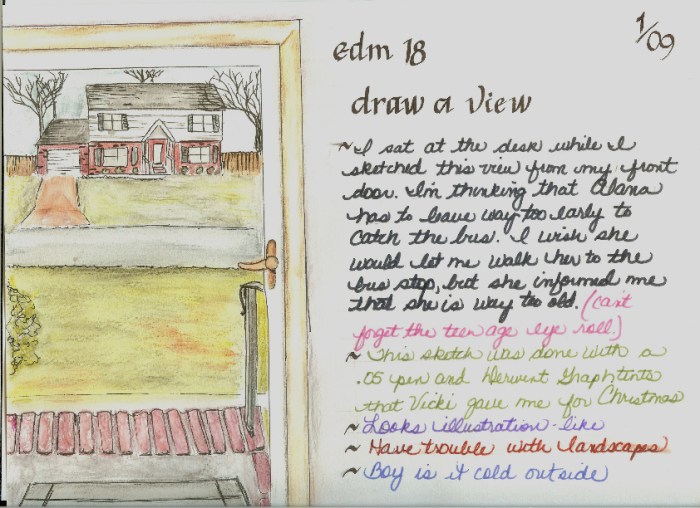 edm 18
1/09
draw a view
~ I sat at the desk while I
sketched this view from my front
door. I'm thinking that Alana
has to leave way too early to
catch the bus. I wish she
would let me walk her to the
bus stop, but she informed me
that she is way too old. (can't
forget the teen age eye roll.)
~ This sketch was done with a
.05 pen and Derwent Graphtints
that Vicki gave me for Christmas
~ Looks illustration-like
~ Have trouble with landscapes
~ Boy is it cold outside